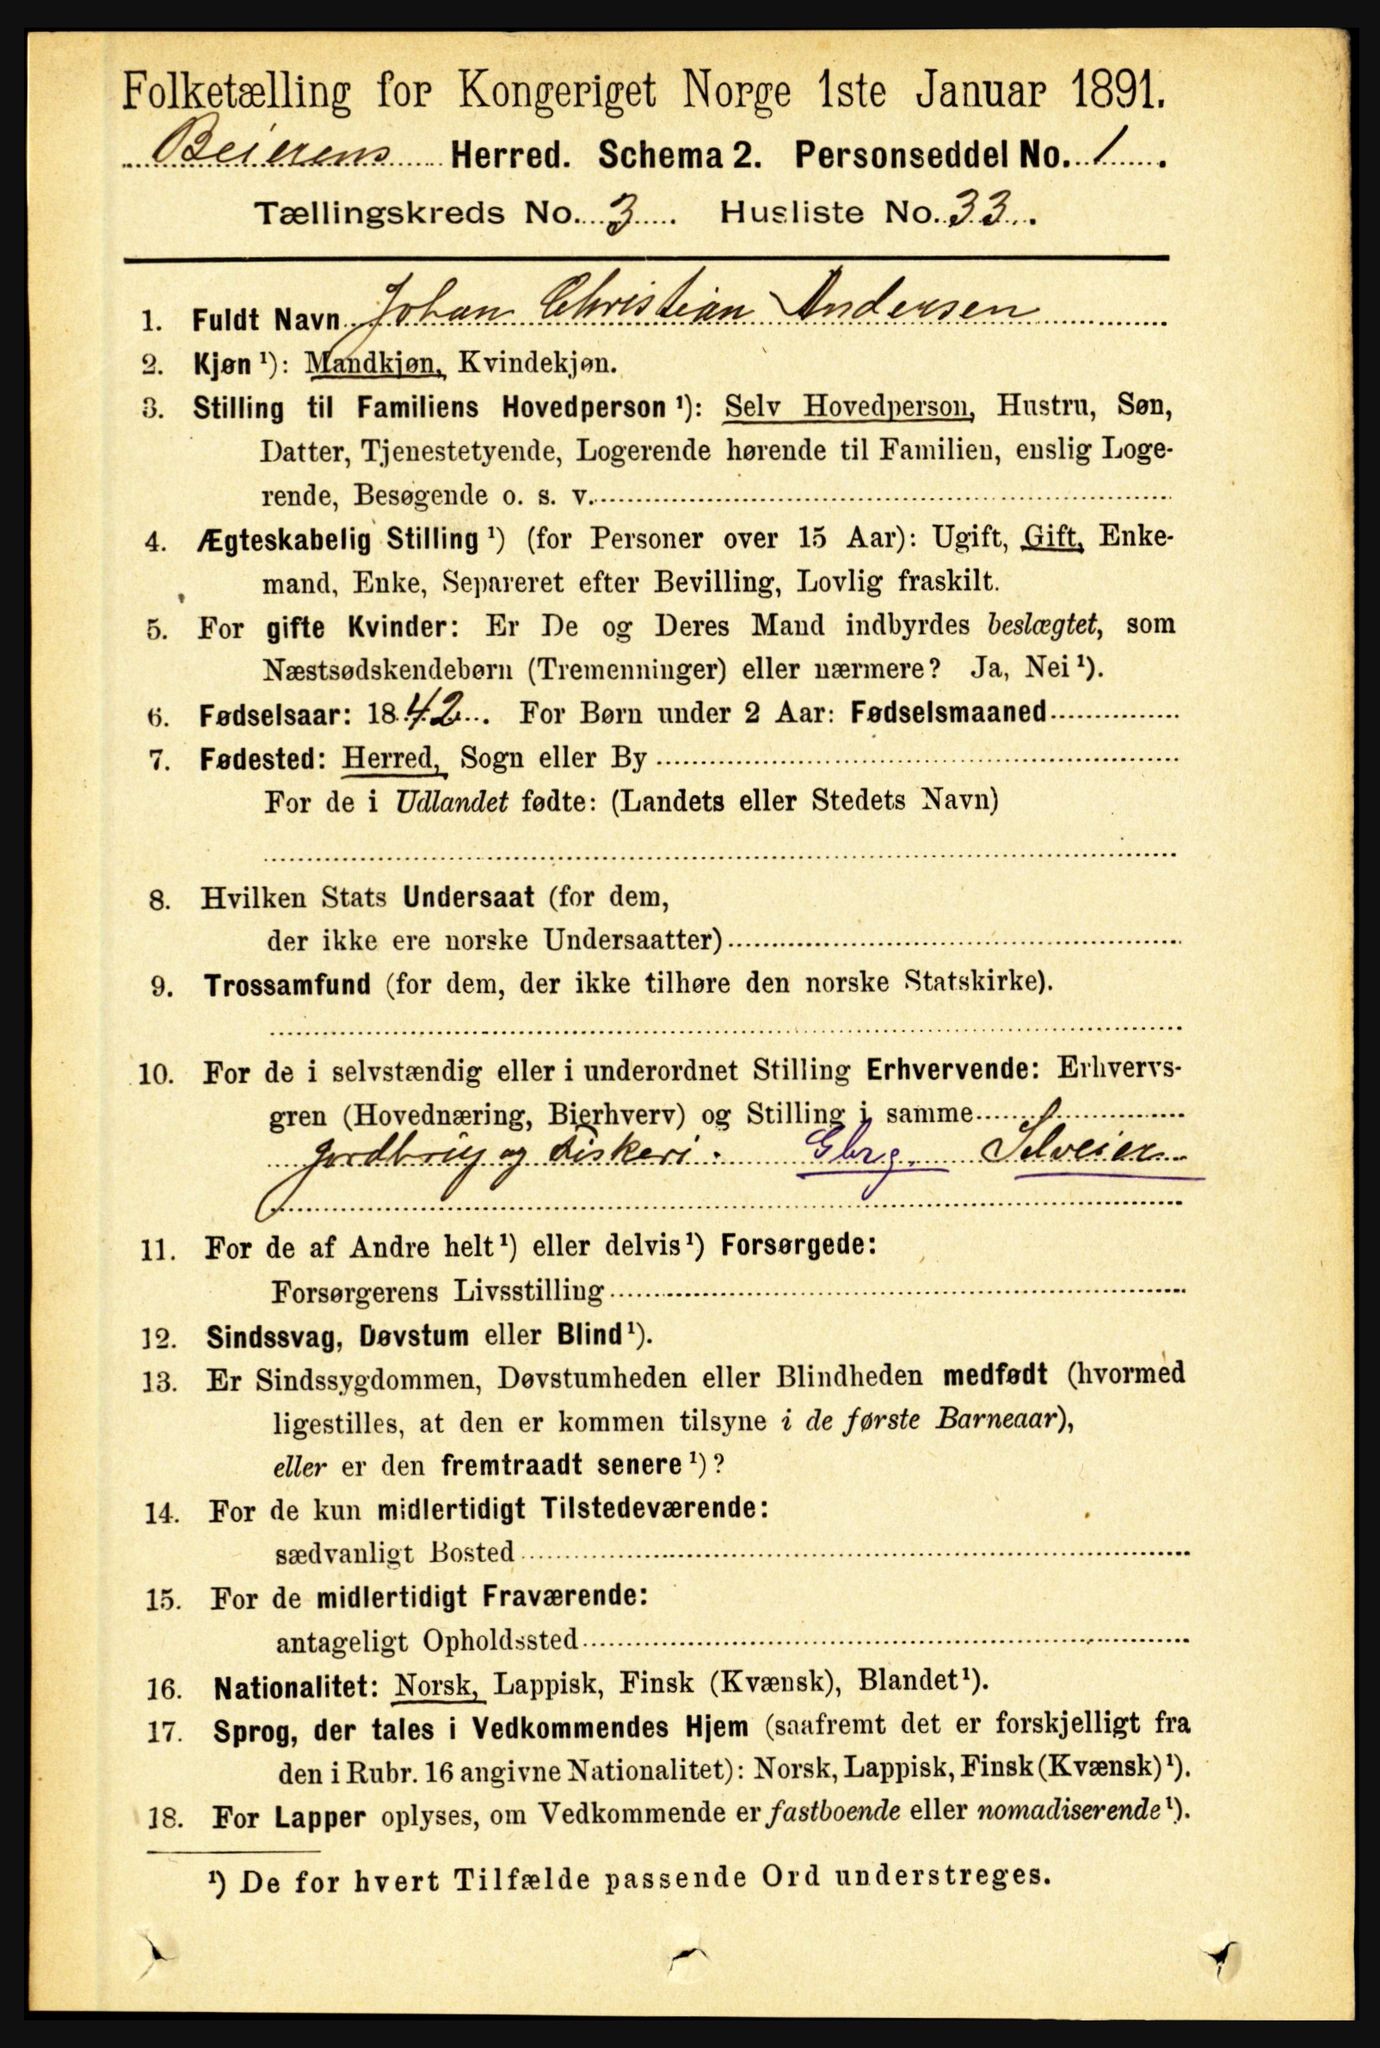 Folketælling for Kongeriget Norge 1ste Januar 1891.
Beierens Herred. Schema 2. Personseddel No. 1.
Tællingskreds No. 3. Husliste No. 33.
1. Fuldt Navn Johan Christian Andersen
2. Kjøn ¹): Mandkjøn, Kvindekjøn.
3. Stilling til Familiens Hovedperson ¹): Selv Hovedperson, Hustru, Søn,
Datter, Tjenestetyende, Logerende hørende til Familien, enslig Loge-
rende, Besøgende o. s. v.
4. Ægteskabelig Stilling ¹) (for Personer over 15 Aar): Ugift, Gift, Enke-
mand, Enke, Separeret efter Bevilling, Lovlig fraskilt.
5. For gifte Kvinder: Er De og Deres Mand indbyrdes beslægtet, som
Næstsødskendebørn (Tremenninger) eller nærmere? Ja, Nei ¹).
6. Fødselsaar: 1842. For Børn under 2 Aar: Fødselsmaaned
7. Fødested: Herred, Sogn eller By
For de i Udlandet fødte: (Landets eller Stedets Navn)
8. Hvilken Stats Undersaat (for dem,
der ikke ere norske Undersaatter)
9. Trossamfund (for dem, der ikke tilhøre den norske Statskirke).
10. For de i selvstændig eller i underordnet Stilling Erhvervende: Erhvervs-
gren (Hovednæring, Bierhverv) og Stilling i samme
Jordbrug og fiskeri. Gbrg. Selveier
11. For de af Andre helt ¹) eller delvis ¹) Forsørgede:
Forsørgerens Livsstilling
12. Sindssvag, Døvstum eller Blind ¹).
13. Er Sindssygdommen, Døvstumheden eller Blindheden medfødt (hvormed
ligestilles, at den er kommen tilsyne i de første Barneaar),
eller er den fremtraadt senere ¹)?
14. For de kun midlertidigt Tilstedeværende:
sædvanligt Bosted
15. For de midlertidigt Fraværende:
antageligt Opholdssted
16. Nationalitet: Norsk, Lappisk, Finsk (Kvænsk), Blandet ¹).
17. Sprog, der tales i Vedkommendes Hjem (saafremt det er forskjelligt fra
den i Rubr. 16 angivne Nationalitet): Norsk, Lappisk, Finsk (Kvænsk) ¹).
18. For Lapper oplyses, om Vedkommende er fastboende eller nomadiserende ¹).
¹) De for hvert Tilfælde passende Ord understreges.